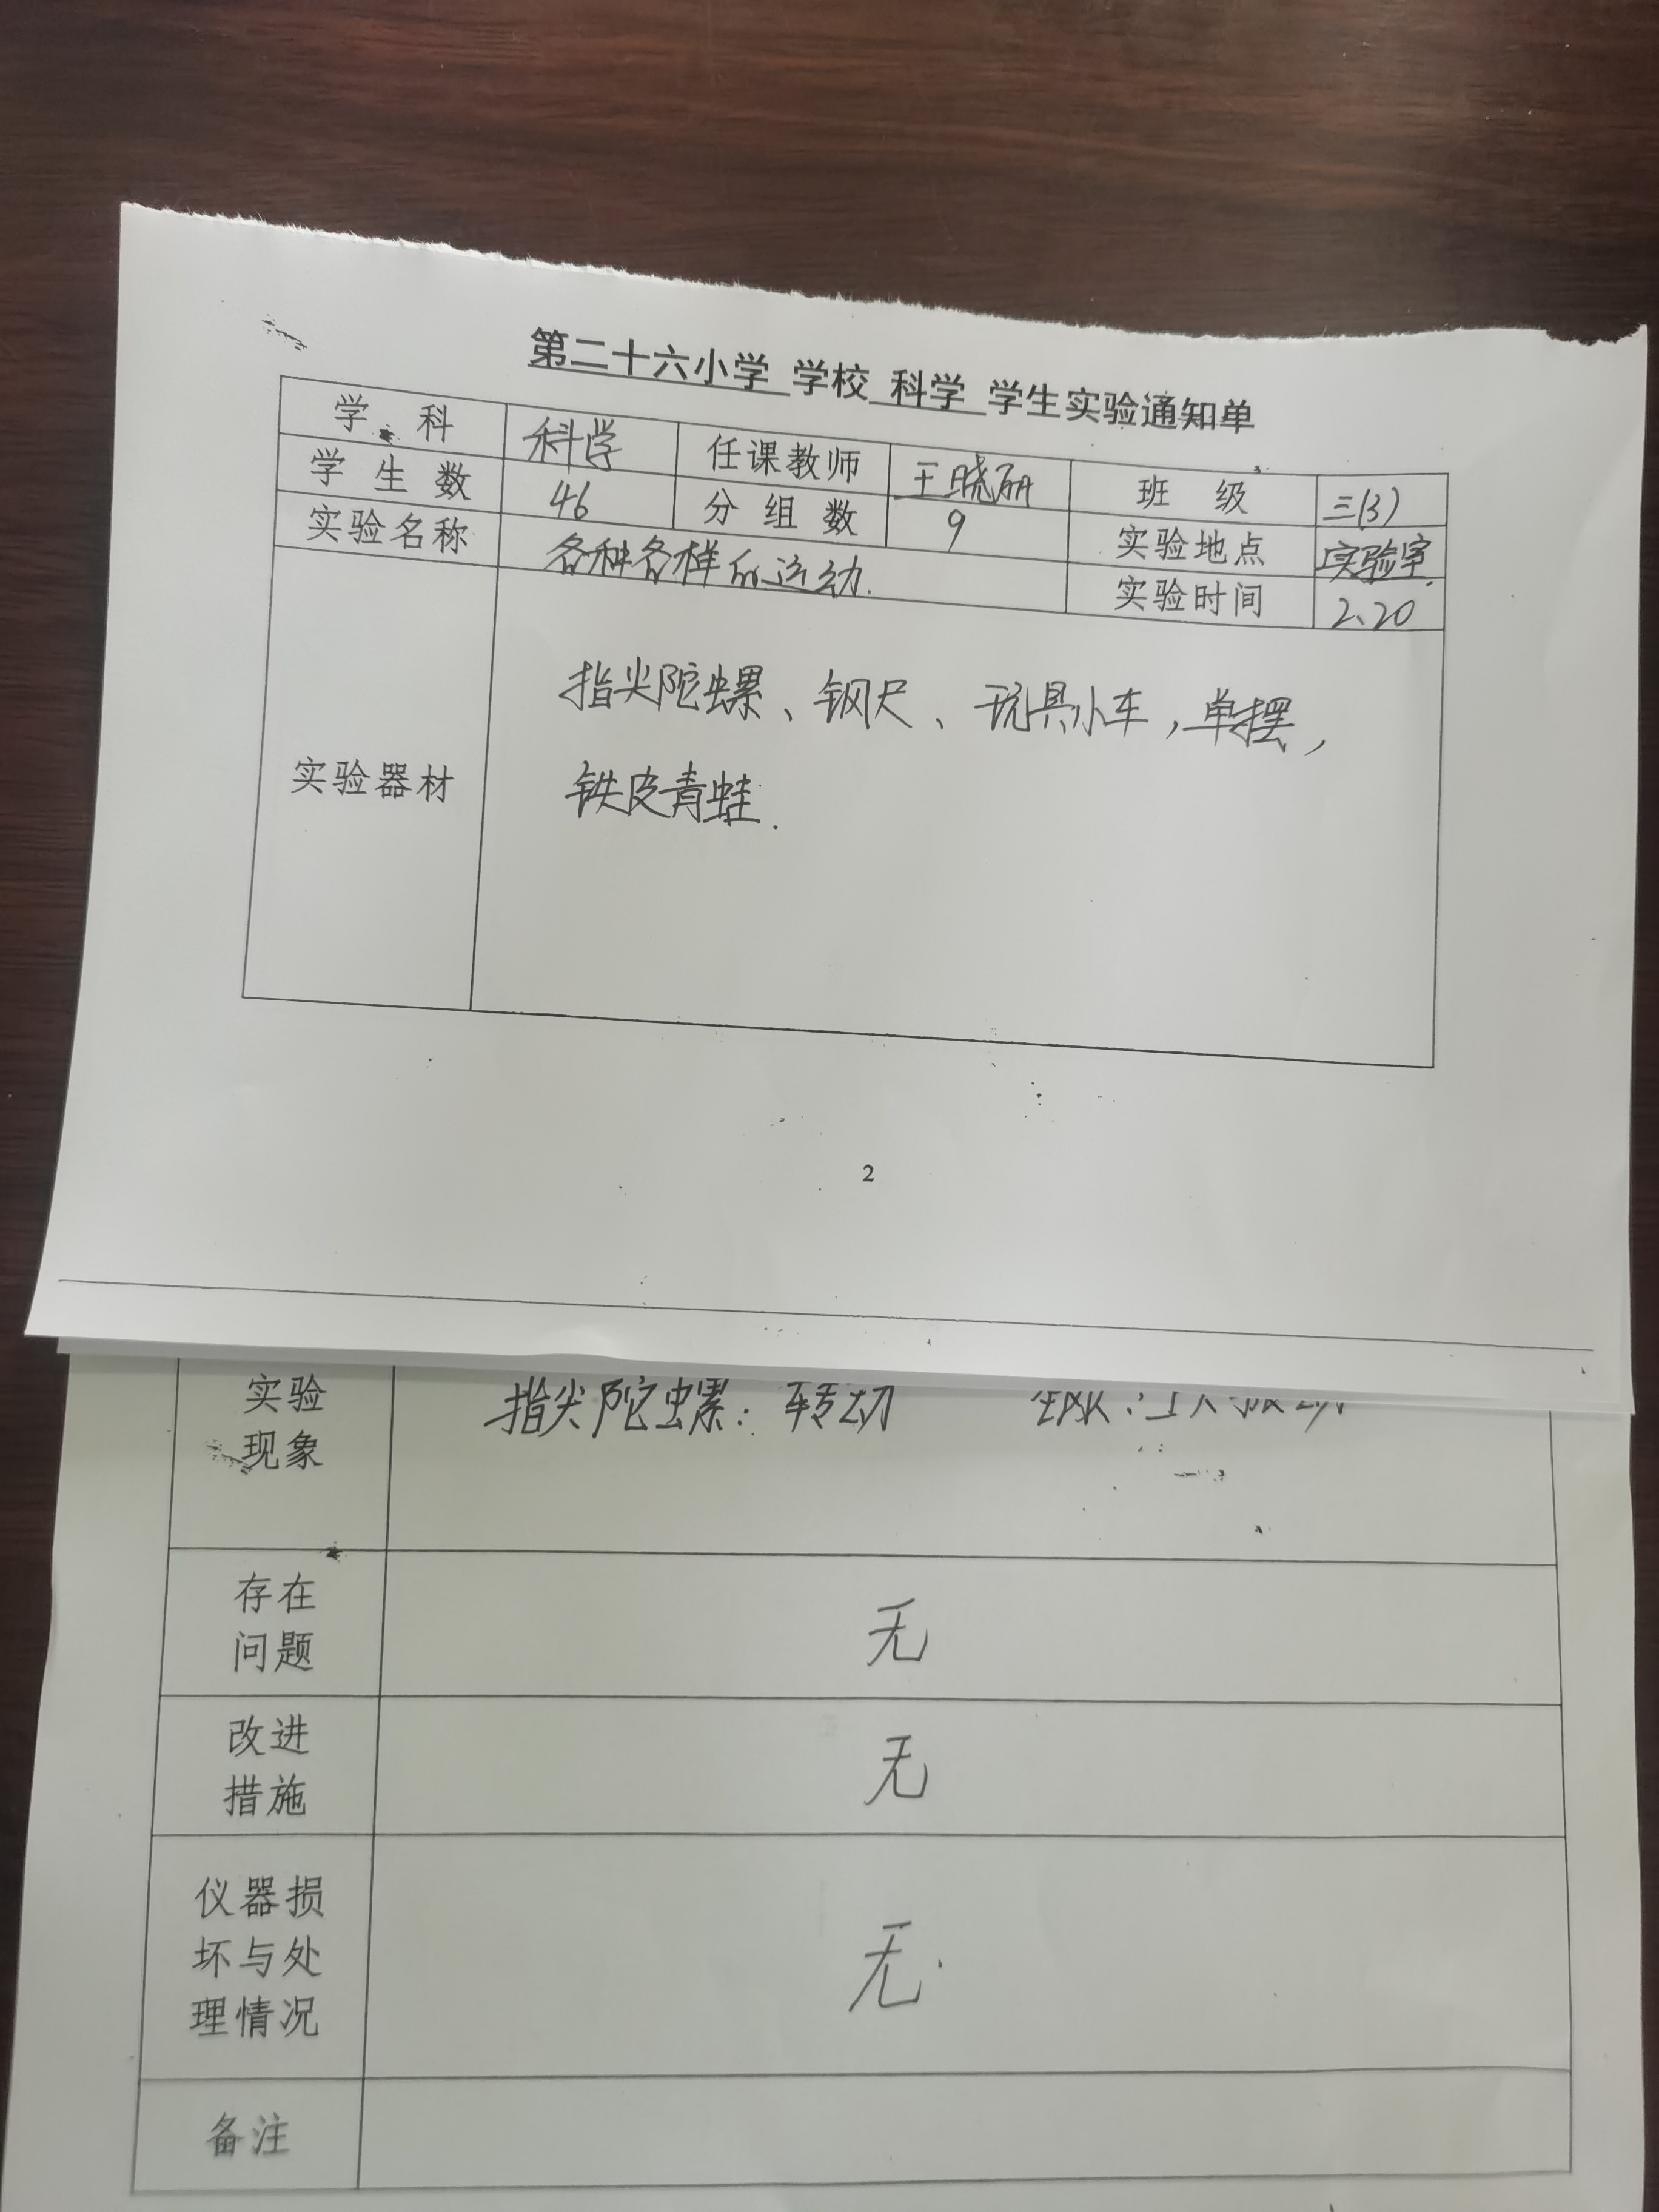 第二十六小学 学校 科学 学生实验通知单
学 科 科学 任课教师 王晓丽 班 级 三(3)
学 生 数 46 分 组 数 9 实验地点 实验室.
实验名称 各种各样的运动. 实验时间 2、20
实验器材
指尖陀螺、钢尺、玩具小车，单摆，
铁皮青蛙.
2
实验
现象
指尖陀螺：转动
存在
问题
无
改进
措施
无
仪器损
坏与处
理情况
无.
备注